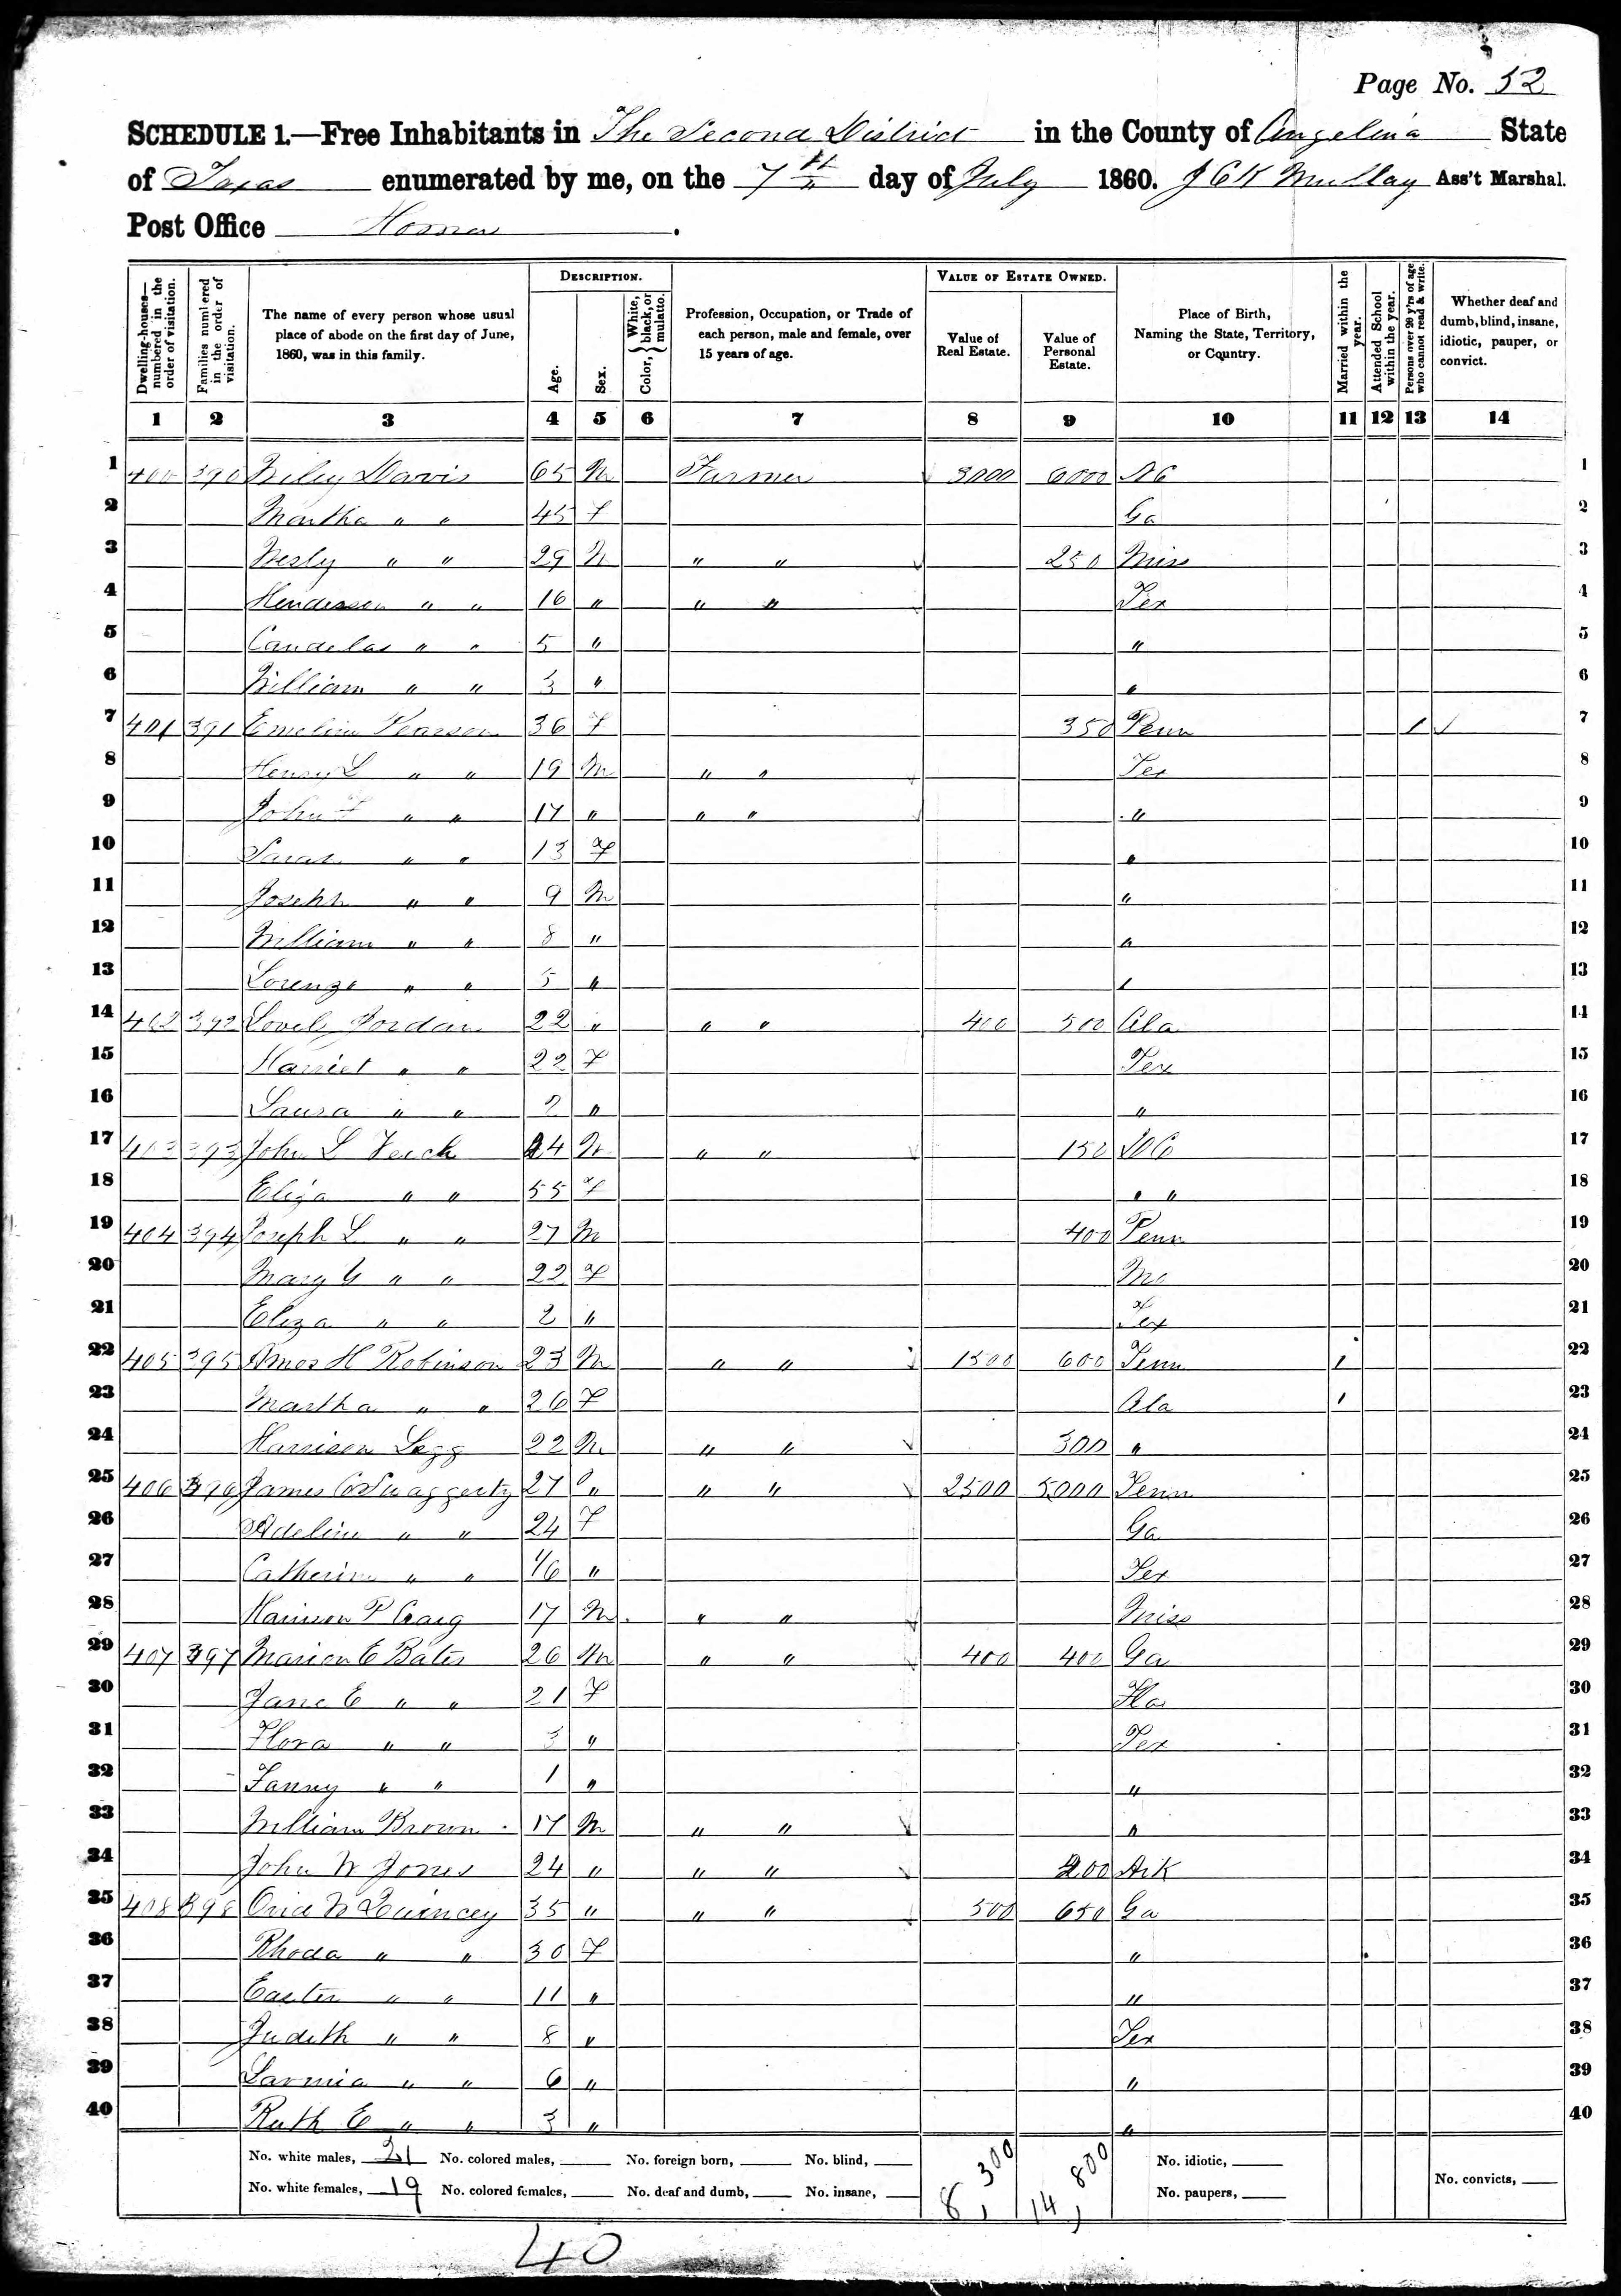 Page No. 52
SCHEDULE 1.—Free Inhabitants in The Second District in the County of Angelina State
of Texas enumerated by me, on the 7th day of July 1860. Ass't Marshal.
Post Office Homer.
Dwelling-houses—numbered in the order of visitation.
Families numbered in the order of visitation.
The name of every person whose usual place of abode on the first day of June, 1860, was in this family.
DESCRIPTION.
Age.
Sex.
Color, { White, black, or mulatto.
Profession, Occupation, or Trade of each person, male and female, over 15 years of age.
VALUE OF ESTATE OWNED.
Value of Real Estate.
Value of Personal Estate.
Place of Birth, Naming the State, Territory, or Country.
Married within the year.
Attended School within the year.
Persons over 20 y'rs of age who cannot read & write.
Whether deaf and dumb, blind, insane, idiotic, pauper, or convict.
1 2 3 4 5 6 7 8 9 10 11 12 13 14
1 400 390 Wiley Davis 65 M Farmer 3000 6000 NC 1
2 Martha " " 45 F Ga 2
3 Wesly " " 29 M " " 250 Miss 3
4 Henderson " " 16 " " " Tex 4
5 " " 5 " " 5
6 William " " 3 " " 6
7 401 391 Emeline Pearson 36 F 350 Penn 1 7
8 Henry L " " 19 M " " Tex 8
9 John F " " 17 " " " " 9
10 Sarah " " 13 F " 10
11 Joseph " " 9 M " 11
12 William " " 8 " " 12
13 Lorenzo " " 5 " " 13
14 402 392 Jordan 22 " " " 400 500 Ala 14
15 Harriet " " 22 F Tex 15
16 Laura " " 2 " " 16
17 403 393 John L 44 M " " 150 17
18 Eliza " " 55 F " " 18
19 404 394 Joseph L " " 27 M 400 Penn 19
20 Mary " " 22 F Mo 20
21 Eliza " " 2 " Tex 21
22 405 395 Amos H Robinson 23 M " " 1500 600 Tenn 1 22
23 Martha " " 26 F Ala 1 23
24 Harrison Legg 22 M " " 300 " 24
25 406 396 James C Swaggerty 27 " " " 2500 5000 Tenn 25
26 Adeline " " 24 F Ga 26
27 Catherine " " 1/6 " Tex 27
28 Harrison P Craig 17 M " " Miss 28
29 407 397 Marion E Bates 26 M " " 400 400 Ga 29
30 Jane E " " 21 F Fla 30
31 Flora " " 3 " Tex 31
32 Fanny " " 1 " " 32
33 William Brown 17 M " " " 33
34 John W Jones 24 " " " 200 Ark 34
35 408 398 W Quincey 35 " " " 500 650 Ga 35
36 Rhoda " " 30 F " 36
37 Easter " " 11 " " 37
38 Judith " " 8 " Tex 38
39 " " 6 " " 39
40 Ruth E " " 3 " " 40
No. white males, 21 No. colored males, No. foreign born, No. blind, 8,300 14,800 No. idiotic,
No. white females, 19 No. colored females, No. deaf and dumb, No. insane, No. paupers, No. convicts,
40